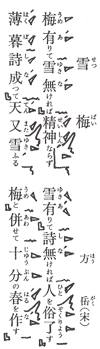 雪梅 方岳(宋)
梅有りて雪無ければ精神ならず 雪有りて詩無ければ人を俗了す
薄暮詩成つて天又雪ふる 梅と併せて十分の春を作す